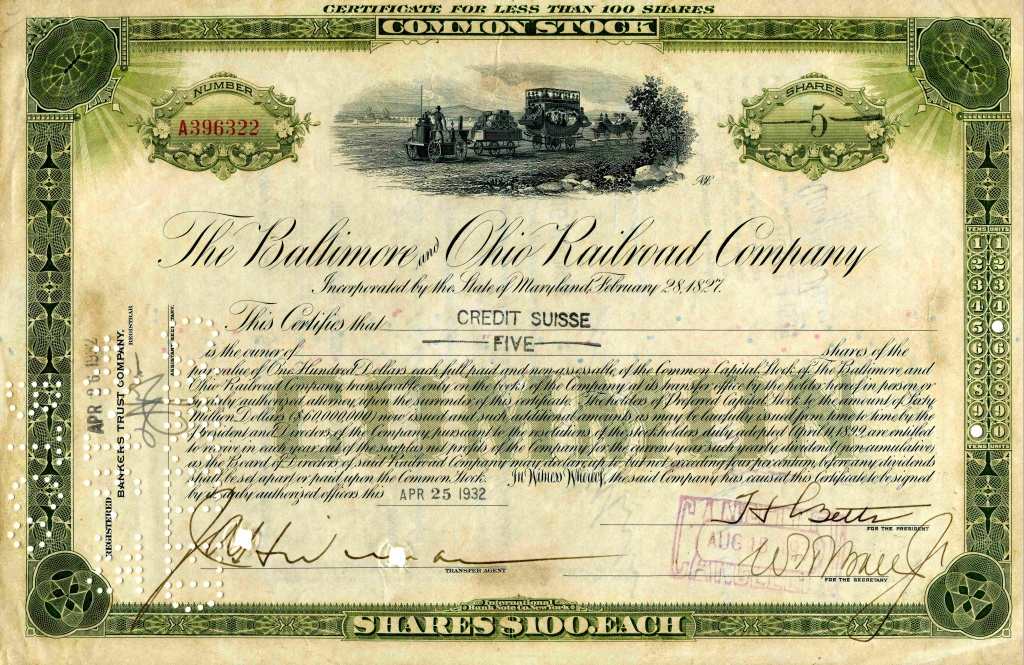 CERTIFICATE FOR LESS THAN 100 SHARES
COMMON STOCK
NUMBER
A396322
SHARES
5
The Baltimore and Ohio Railroad Company
Incorporated by the State of Maryland, February 28, 1827.
This Certifies that CREDIT SUISSE
is the owner of FIVE shares of the
par value of One Hundred Dollars each full paid and non-assessable of the Common Capital Stock of The Baltimore and
Ohio Railroad Company, transferable only on the books of the Company at its transfer office by the holder hereof in person or
by duly authorized attorney upon the surrender of this certificate. The holders of Preferred Capital Stock to the amount of Sixty
Million Dollars ($60,000,000), now issued and such additional amounts as may be lawfully issued from time to time by the
President and Directors of the Company pursuant to the resolutions of the stockholders duly adopted April 11, 1899, are entitled
to receive in each year out of the surplus net profits of the Company for the current year such yearly dividend (non-cumulative)
as the Board of Directors of said Railroad Company may declare, up to but not exceeding four per centum, before any dividends
shall be set apart or paid upon the Common Stock. In Witness Whereof, the said Company has caused this Certificate to be signed
by its duly authorized officers this APR 25 1932
FOR THE PRESIDENT
AUG
TRANSFER AGENT
FOR THE SECRETARY
REGISTERED APR 26 1932
BANKERS TRUST COMPANY,
REGISTRAR
ASSISTANT SECRETARY.
TENS UNITS
1 1
2 2
3 3
4 4
5
6 6
7 7
8 8
9 9
0
TENS UNITS
International
Bank Note Co. New York
SHARES $100. EACH